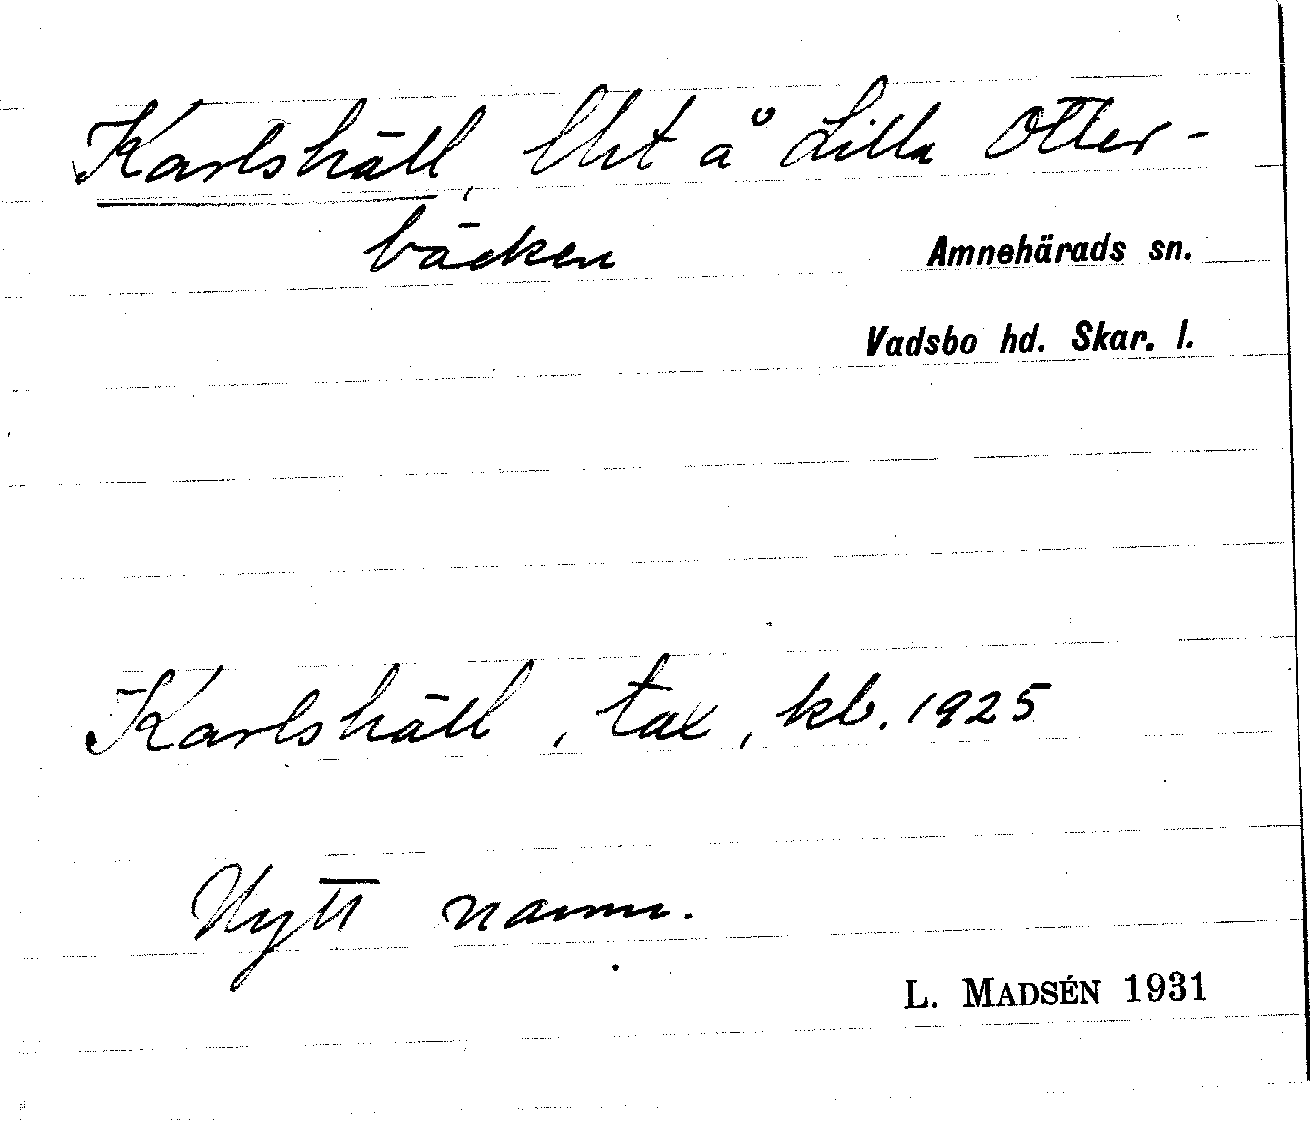 Karlshäll, lht å Lilla Otter-
bäcken
Amnehärads sn.
Vadsbo hd. Skar. l.
Karlshäll, tax, kb. 1925
Nytt namn.
L. MADSÉN 1931